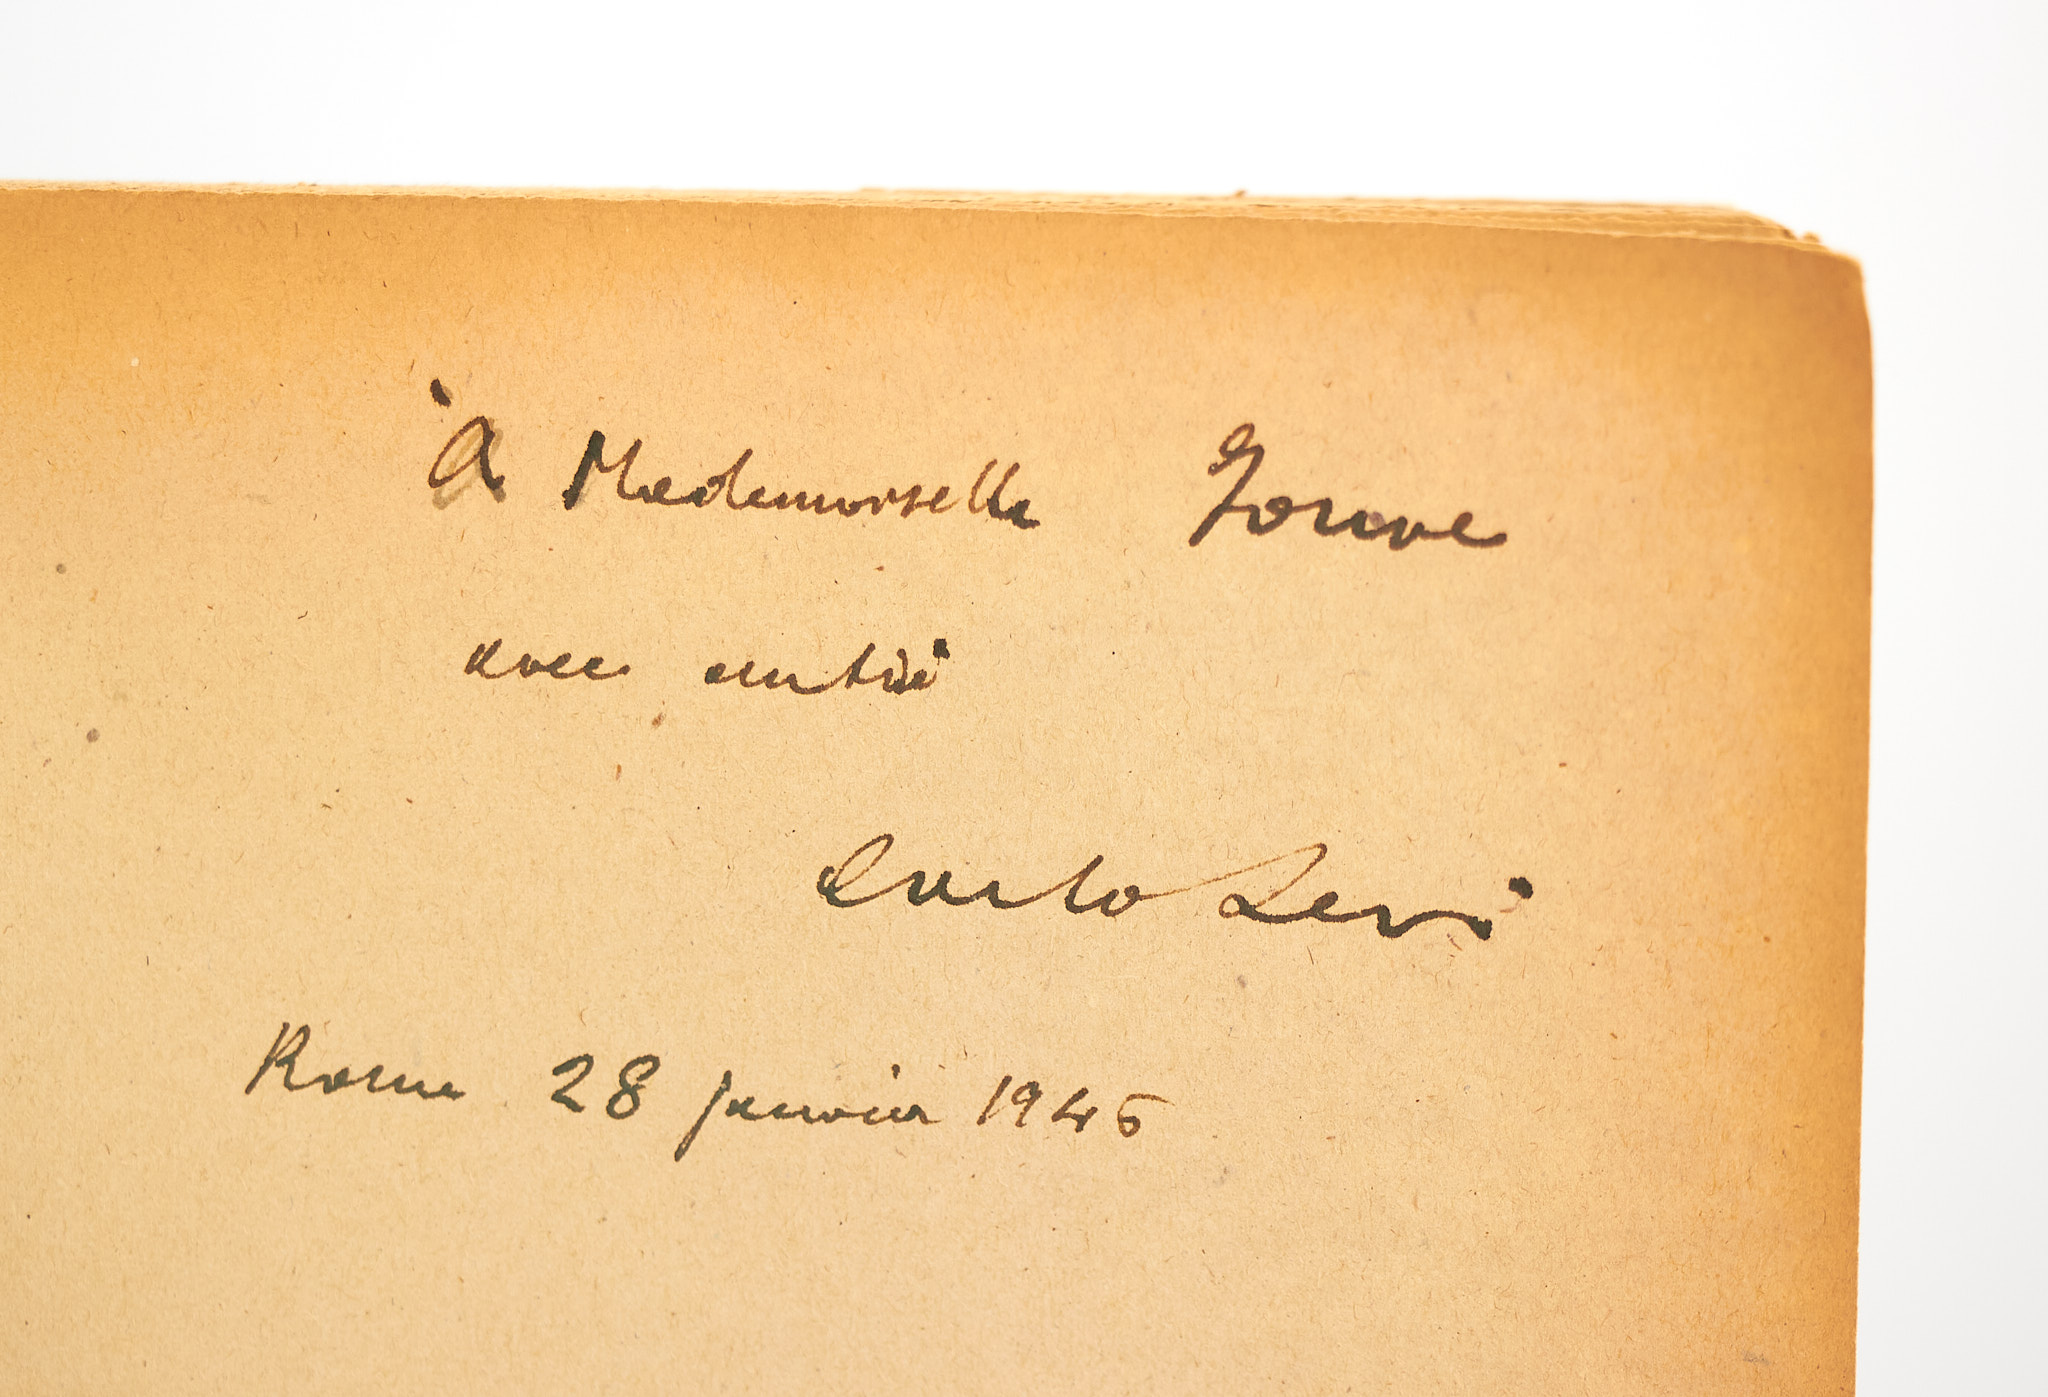 À Mademoiselle Jouve
avec amitié
Carlo Levi
Rome 28 janvier 1946